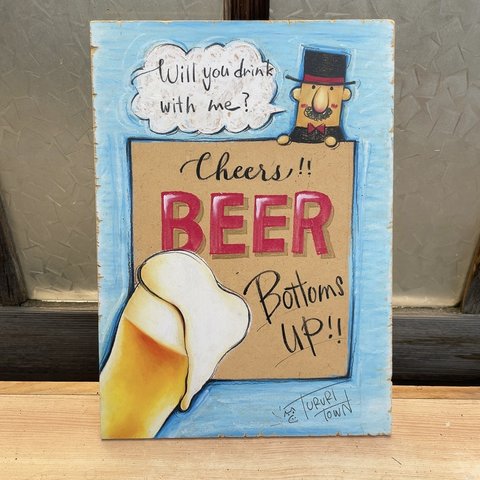 Will you drink
with me?
Cheers!!
BEER
Bottoms
UP!!
TURURI
TOWN